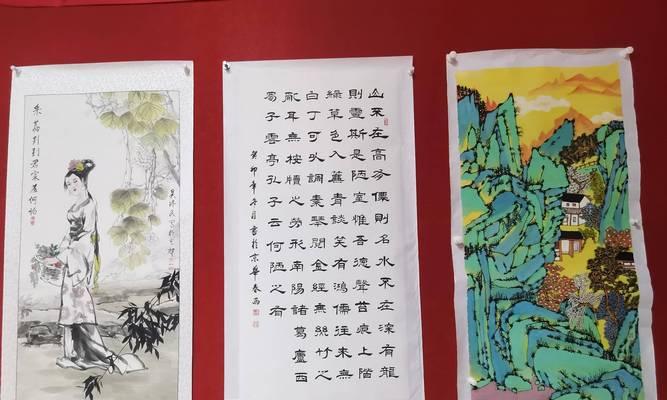 山不在高有僊則名水不在深有龍
則靈斯是陋室惟吾德馨苔痕上階
綠草色入簾青談笑有鴻儒往來無
白丁可以調素琴閱金經無絲竹之
亂耳無桉牘之勞形南陽諸葛廬西
蜀子雲亭孔子云何陋之有
癸卯年冬月書於京華